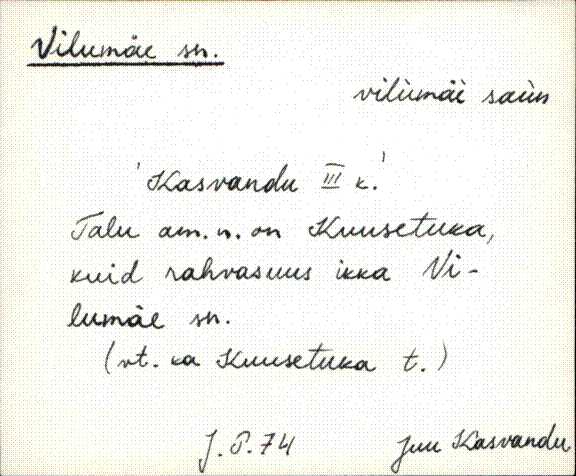 Vilumäe sn.
vilùmäè saùn
'Kasvandu III k.'
Talu am. n. on Kuusetuka,
kuid rahvasuus ikka Vi-
lumäe sn.
(vt. ka Kuusetuka t.)
J. P. 74 Juu Kasvandu